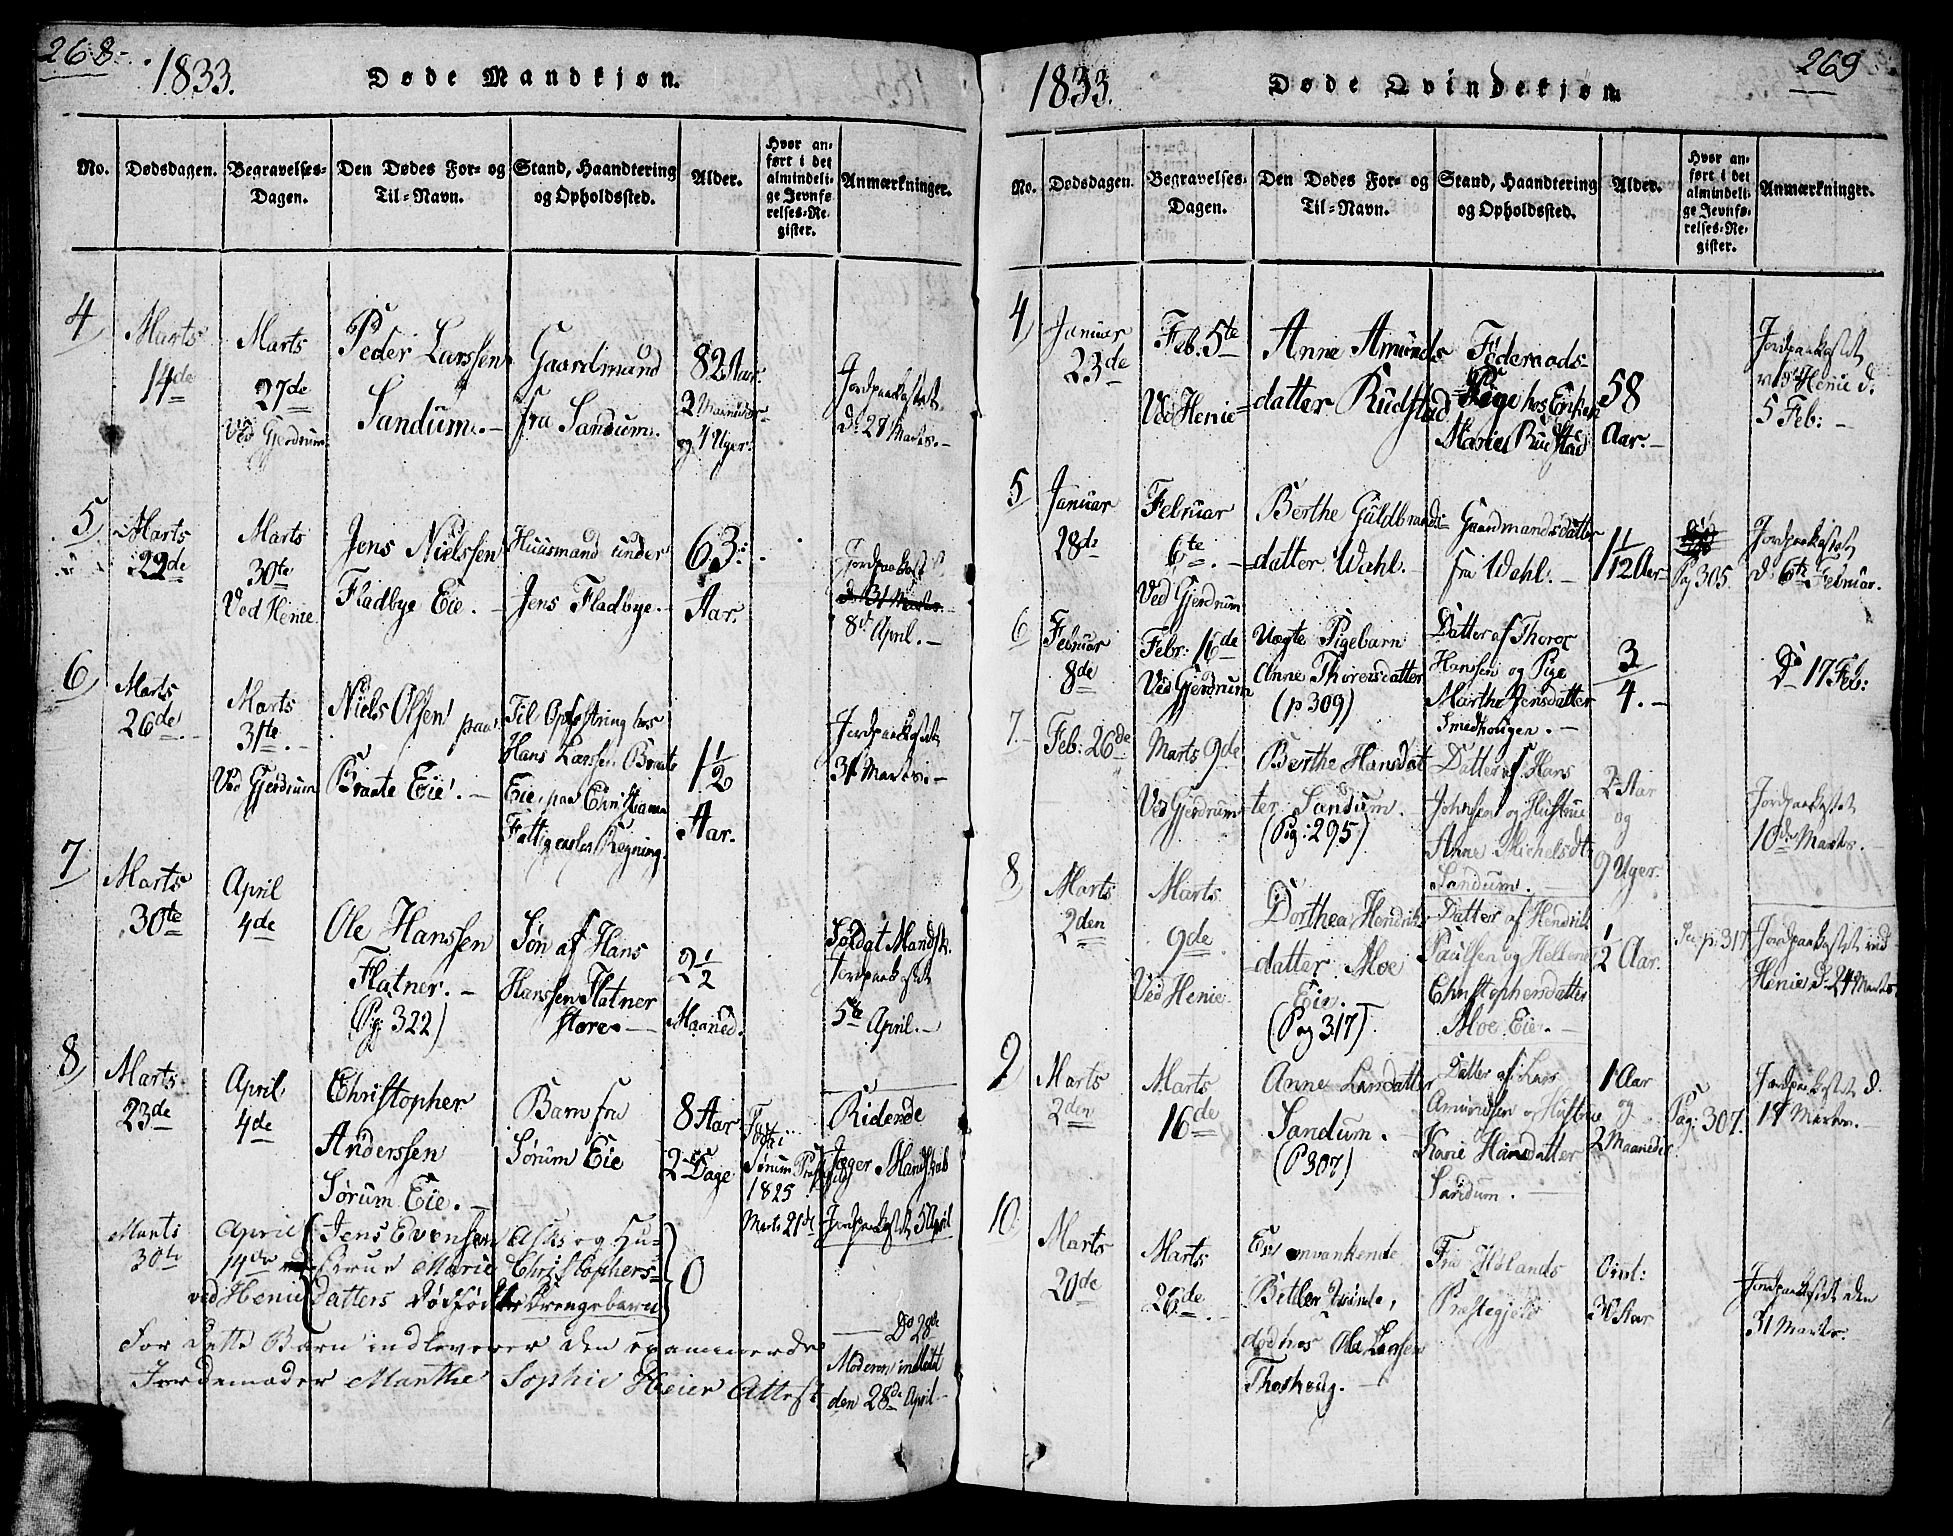 268.
1833.
Døde Mandkjøn.
No.
Dødsdagen.
Begravelses-
Dagen.
Den Dødes For- og
Til-Navn.
Stand, Haandtering
og Opholdssted.
Alder.
Hvor an-
ført i det
almindeli-
ge Jevnfø-
relses-Re-
gister.
Anmærkninger.
4
Marts
14de
Marts
27de
Ved Gjerdrum
Peder Larssen
Sandum.
Gaardmand
fra Sandum.
82 Aar.
2 Maaneder
og 4 Uger.
Jordpaakastet
d. 28 Marts.
5
Marts
22de
Marts
30te
Ved Henie
Jens Nielssen
Fladbye Eie.
Huusmand under
Jens Fladbye.
63
Aar.
Jordpaakastet
d. 31 Marts
8de April.
6
Marts
26de
Marts
31te
Ved Gjerdrum
Niels Olsen paa
Braate Eie.
Til Opfostring hos
Hans Larssen Braate
Eie, paa Christiania
Fattigcasses Regning.
1 1/2
Aar.
Jordpaakastet
31 Marts.
7
Marts
30te
April
4de
Ole Hanssen
Flatner.
(Pg. 322)
Søn af Hans
Hanssen Flatner
store
2 1/2
Maaned.
Soldat Mandsk.
Jordpaakastet
5te April.
8
Marts
23de
April
4de
Christopher
Anderssen
Sørum Eie.
Barn fra
Sørum Eie
8 Aar
2 Dage
Sørum
1825
Marts 21de
Ridende
Jæger Mandskab
Jordpaakastet 5 April
Marts
30te
April
14de
ved Henie
Jens Evensen Ask og Hu-
strue Marie Christophers-
datters Dødfødte Drengebarn
0
For dette Barn indleverer den examinerede
Jordemoder Marthe Sophie Heier Attest
Do 28de
Moderen indledt
den 28de April
269
1833.
Døde Qvindekjøn.
No.
Dødsdagen.
Begravelses-
Dagen.
Den Dødes For- og
Til-Navn.
Stand, Haandtering
og Opholdssted.
Alder.
Hvor an-
ført i det
almindeli-
ge Jevnfø-
relses-Re-
gister.
Anmærkninger.
4
Januar
23de
Feb. 5te
Ved Henie
Anne Amunds
datter Rudstad
Føderaads-
Pige hos Enken
Marie Rudstad
58
Aar.
Jordpaakastet
ved Henie d.
5 Feb:
5
Januar
28de
Februar
6te
Ved Gjerdrum
Berthe Guldbrands-
datter Wahl.
Gaardmandsdatter
fra Wahl.
1 1/12 Aar
Pag 305.
Jordpaakastet
d. 6te Februar.
6
Februar
8de
Febr: 16de
Ved Gjerdrum
Uægte Pigebarn
Anne Thorersdatter
(p 309)
Datter af Thorer
Hanssen og Pige
Marthe Jensdatter
Smedhougen.
3/4.
Do 17 Feb:
7.
Feb: 26de
Marts 9de
Ved Gjerdrum
Berthe Hansdat
ter Sandum.
(Pag: 295)
Datter af Hans
Johnsen og Hustrue
Anne Michelsdtr
Sandum.
2 Aar
og
9 Uger.
Jordpaakastet
10de Marts.
8
Marts
2den
Marts
9de
Ved Henie
Dorthea Hendriks
datter Moe
Eie.
(Pag 317)
Datter af Hendrik
Paulsen og Hellene
Christophersdatter
Moe Eie.
1/2 Aar.
p. 317
Jordpaakastet ved
Henie d. 24 Marts
9
Marts
2den
Marts
16de
Anne Larsdatter
Sandum.
(P 307)
Datter af Lars
Amundsen og Hustrue
Karie Hansdatter
Sandum.
1 Aar
og
2 Maaneder
Pag: 307.
Jordpaakastet d.
17 Marts.
10
Marts
20de
Marts
26de
En omvankende
Betler Qvinde,
død hos Ole Larssen
Thorshoug.
Fra Hølands
Præstegjeld
Omt:
Aar
Jordpaakastet den
31 Marts.